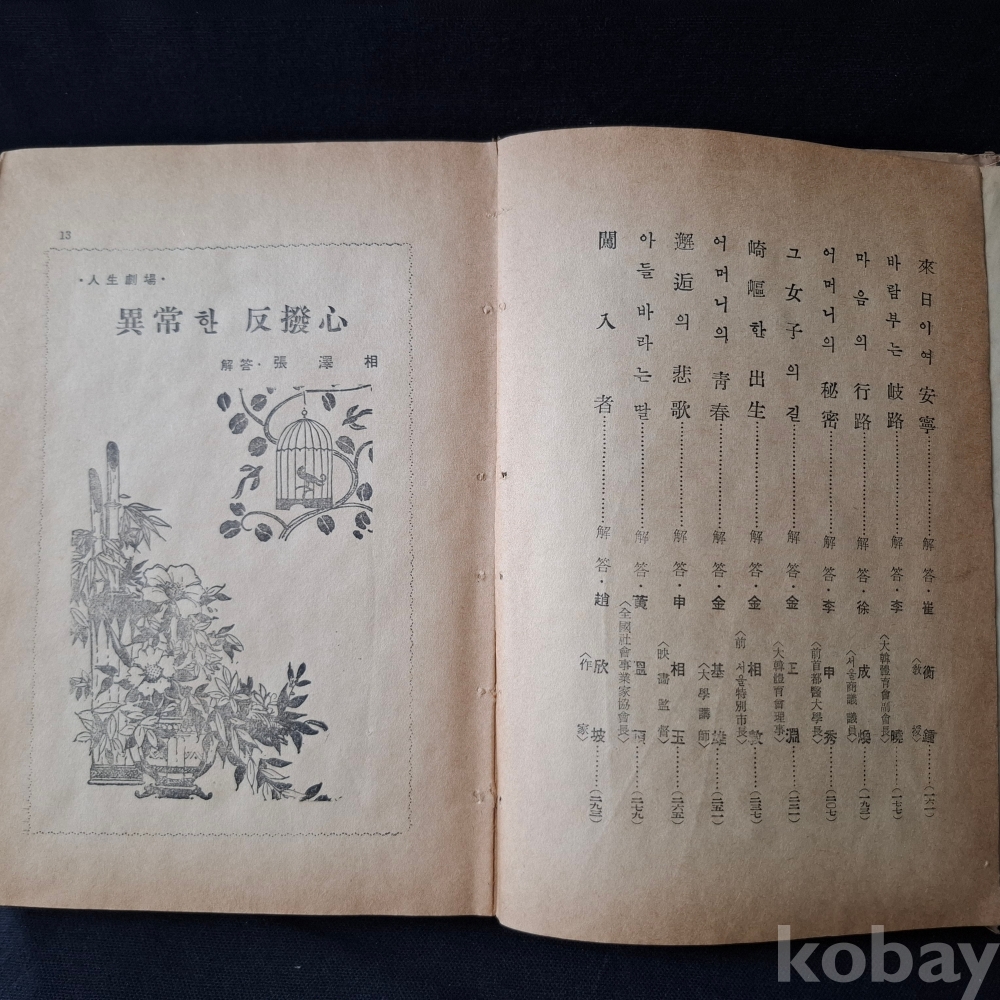 來日이여 安寧……解答・崔 衡 (一六一)
〈敎授〉
바람부는 岐路……解答・李 曉……(一七七)
〈大韓體育會副會長〉
마음의 行路……解答・徐 成 煥……(一九三)
〈서울商議議員〉
어머니의 秘密……解答・李 申 秀……(二〇七)
〈前首都醫大學長〉
그 女子의 길……解答・金 正 淵……(二二一)
〈大韓體育會理事〉
崎嶇한 出生……解答・金 相 敦……(二三七)
〈前 서울特別市長〉
어머니의 靑春……解答・金 基 雄……(二五一)
〈大學講師〉
邂逅의 悲歌……解答・申 相 玉……(二六五)
〈映畵監督〉
아들 바라는 딸……解答・黃 溫 順……(二七九)
〈全國社會事業家協會長〉
闖入者……解答・趙 欣 坡……(二九三)
〈作家〉
13
・人生劇場・
異常한 反撥心
解答・張 澤 相
kobay